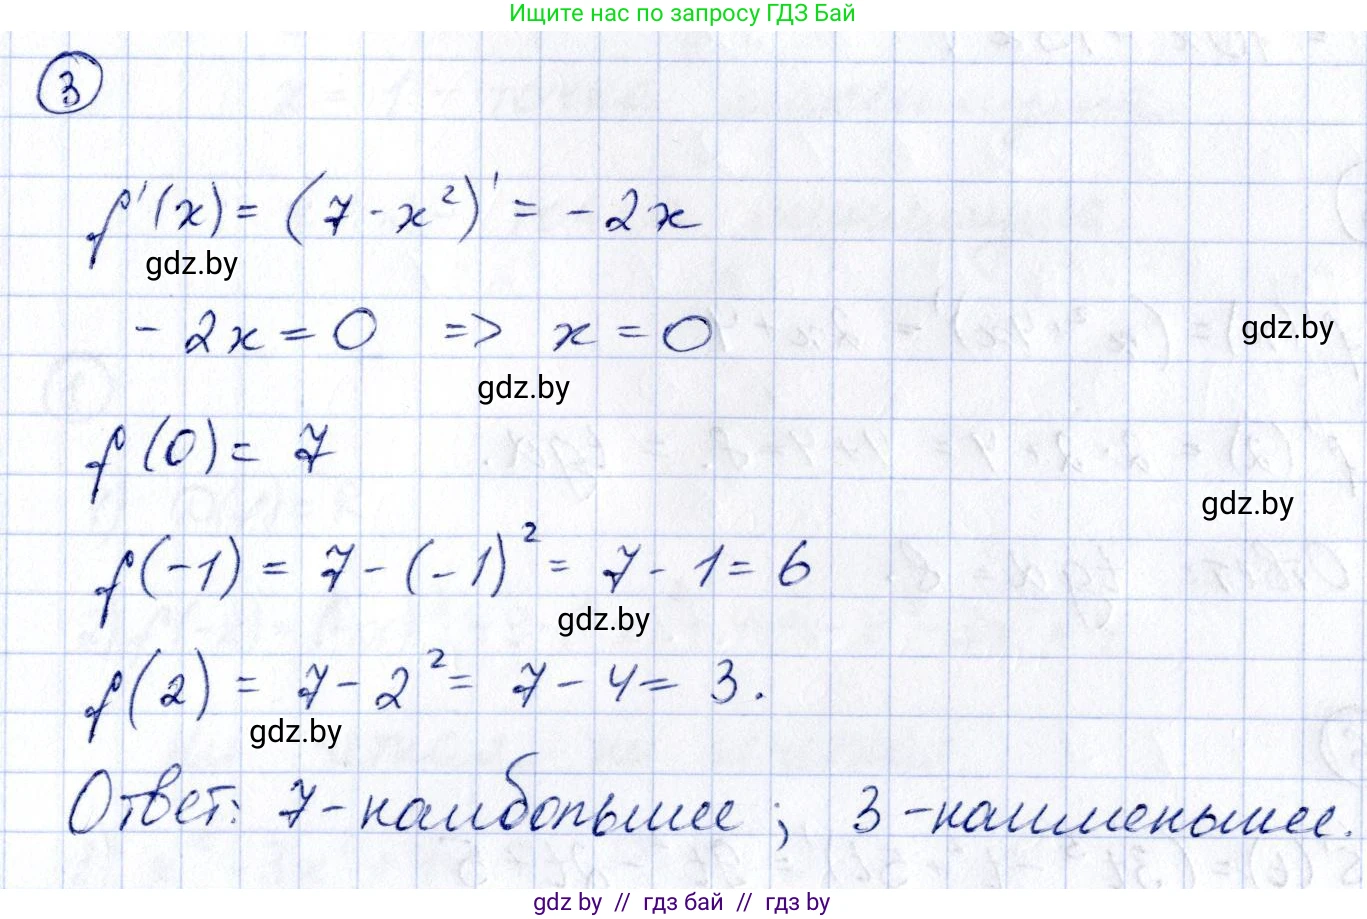 Ищите нас по запросу ГДЗ Бай
3
f'(x) = (7 - x²)' = -2x
gdz.by
-2x = 0 => x = 0
gdz.by
gdz.by
f(0) = 7
gdz.by
f(-1) = 7 - (-1)² = 7 - 1 = 6
gdz.by
f(2) = 7 - 2² = 7 - 4 = 3.
gdz.by
Ответ: 7 - наибольшее ; 3 - наименьшее.
gdz.by // гдз бай // gdz by